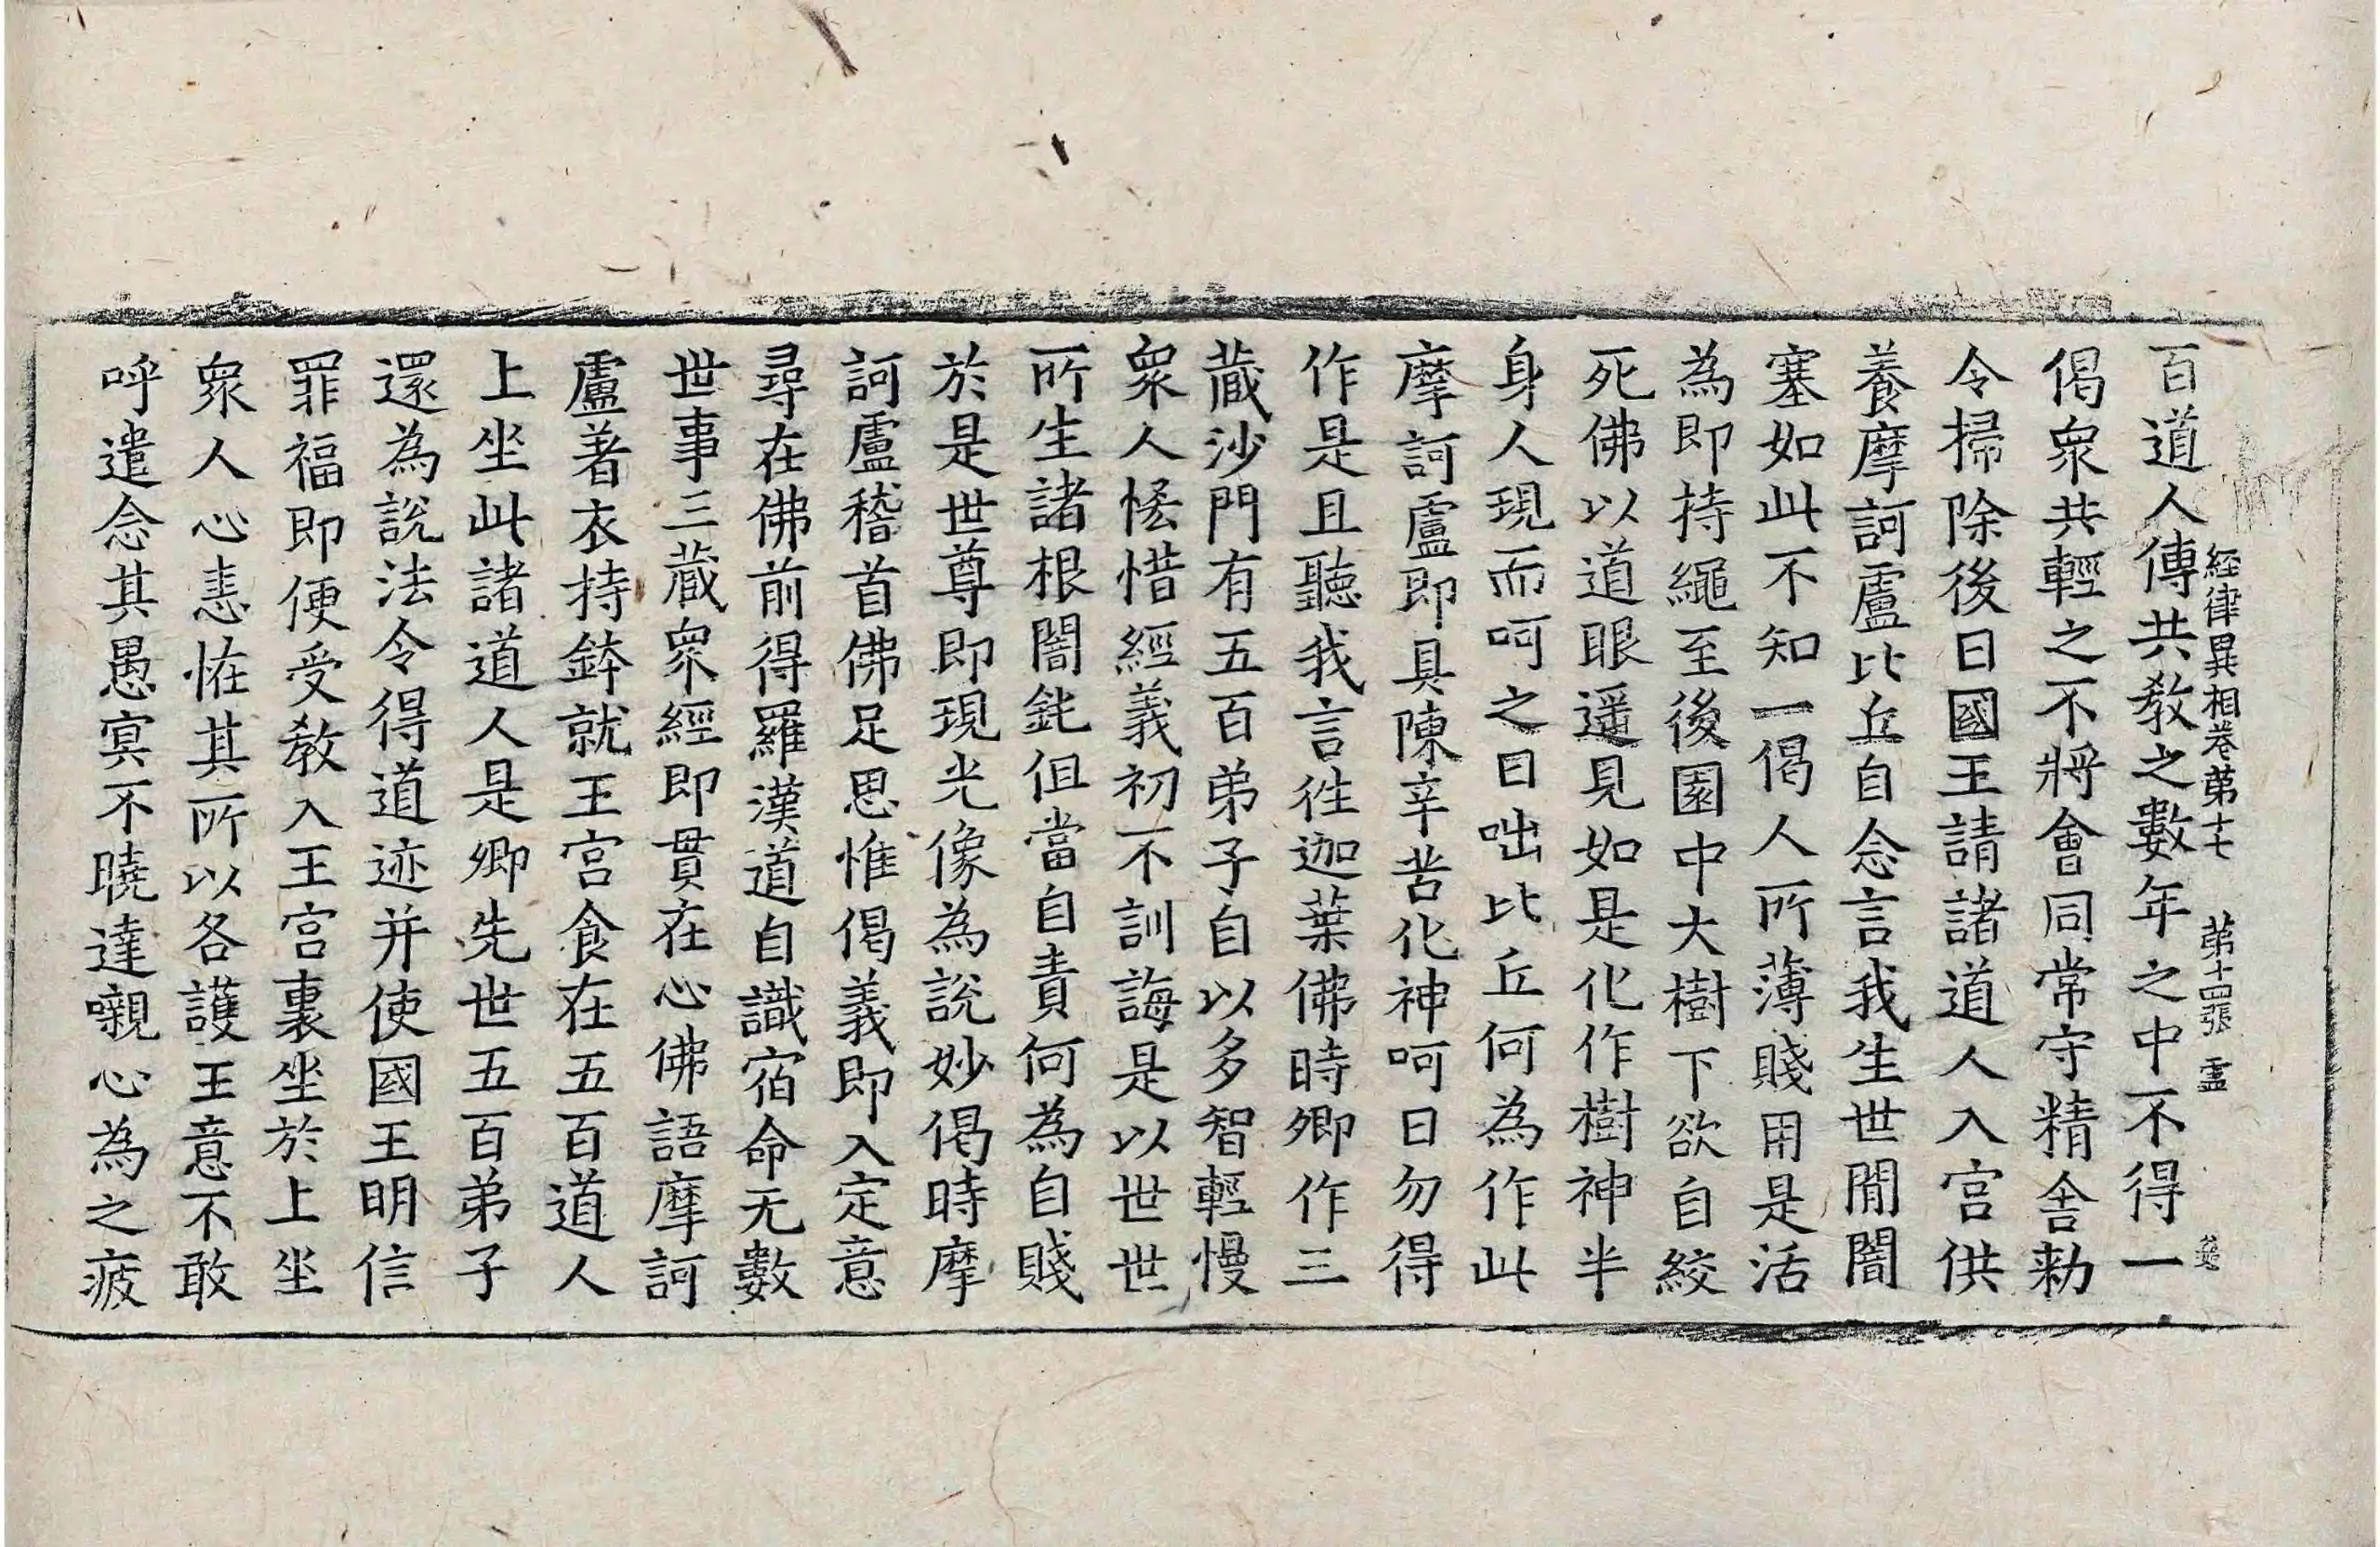 經律異相卷第十七 第十四張 盡
百道人傳共教之數年之中不得一
偈衆共輕之不將會同常守精舍勑
令掃除後日國王請諸道人入宮供
養摩訶盧比丘自念言我生世閒闇
塞如此不知一偈人所薄賤用是活
為即持繩至後園中大樹下欲自絞
死佛以道眼遥見如是化作樹神半
身人現而呵之曰咄比丘何為作此
摩訶盧即具陳辛苦化神呵曰勿得
作是且聽我言徃迦葉佛時卿作三
藏沙門有五百弟子自以多智輕慢
衆人恡惜經義初不訓誨是以世世
所生諸根闇鈍但當自責何為自賤
於是世尊即現光像為說妙偈時摩
訶盧稽首佛足思惟偈義即入定意
尋在佛前得羅漢道自識宿命无數
世事三藏衆經即貫在心佛語摩訶
盧著衣持鉢就王宮食在五百道人
上坐此諸道人是卿先世五百弟子
還為說法令得道迹并使國王明信
罪福即便受教入王宮裏坐於上坐
衆人心恚恠其所以各護王意不敢
呼遣念其愚寘不曉達嚫心為之疲